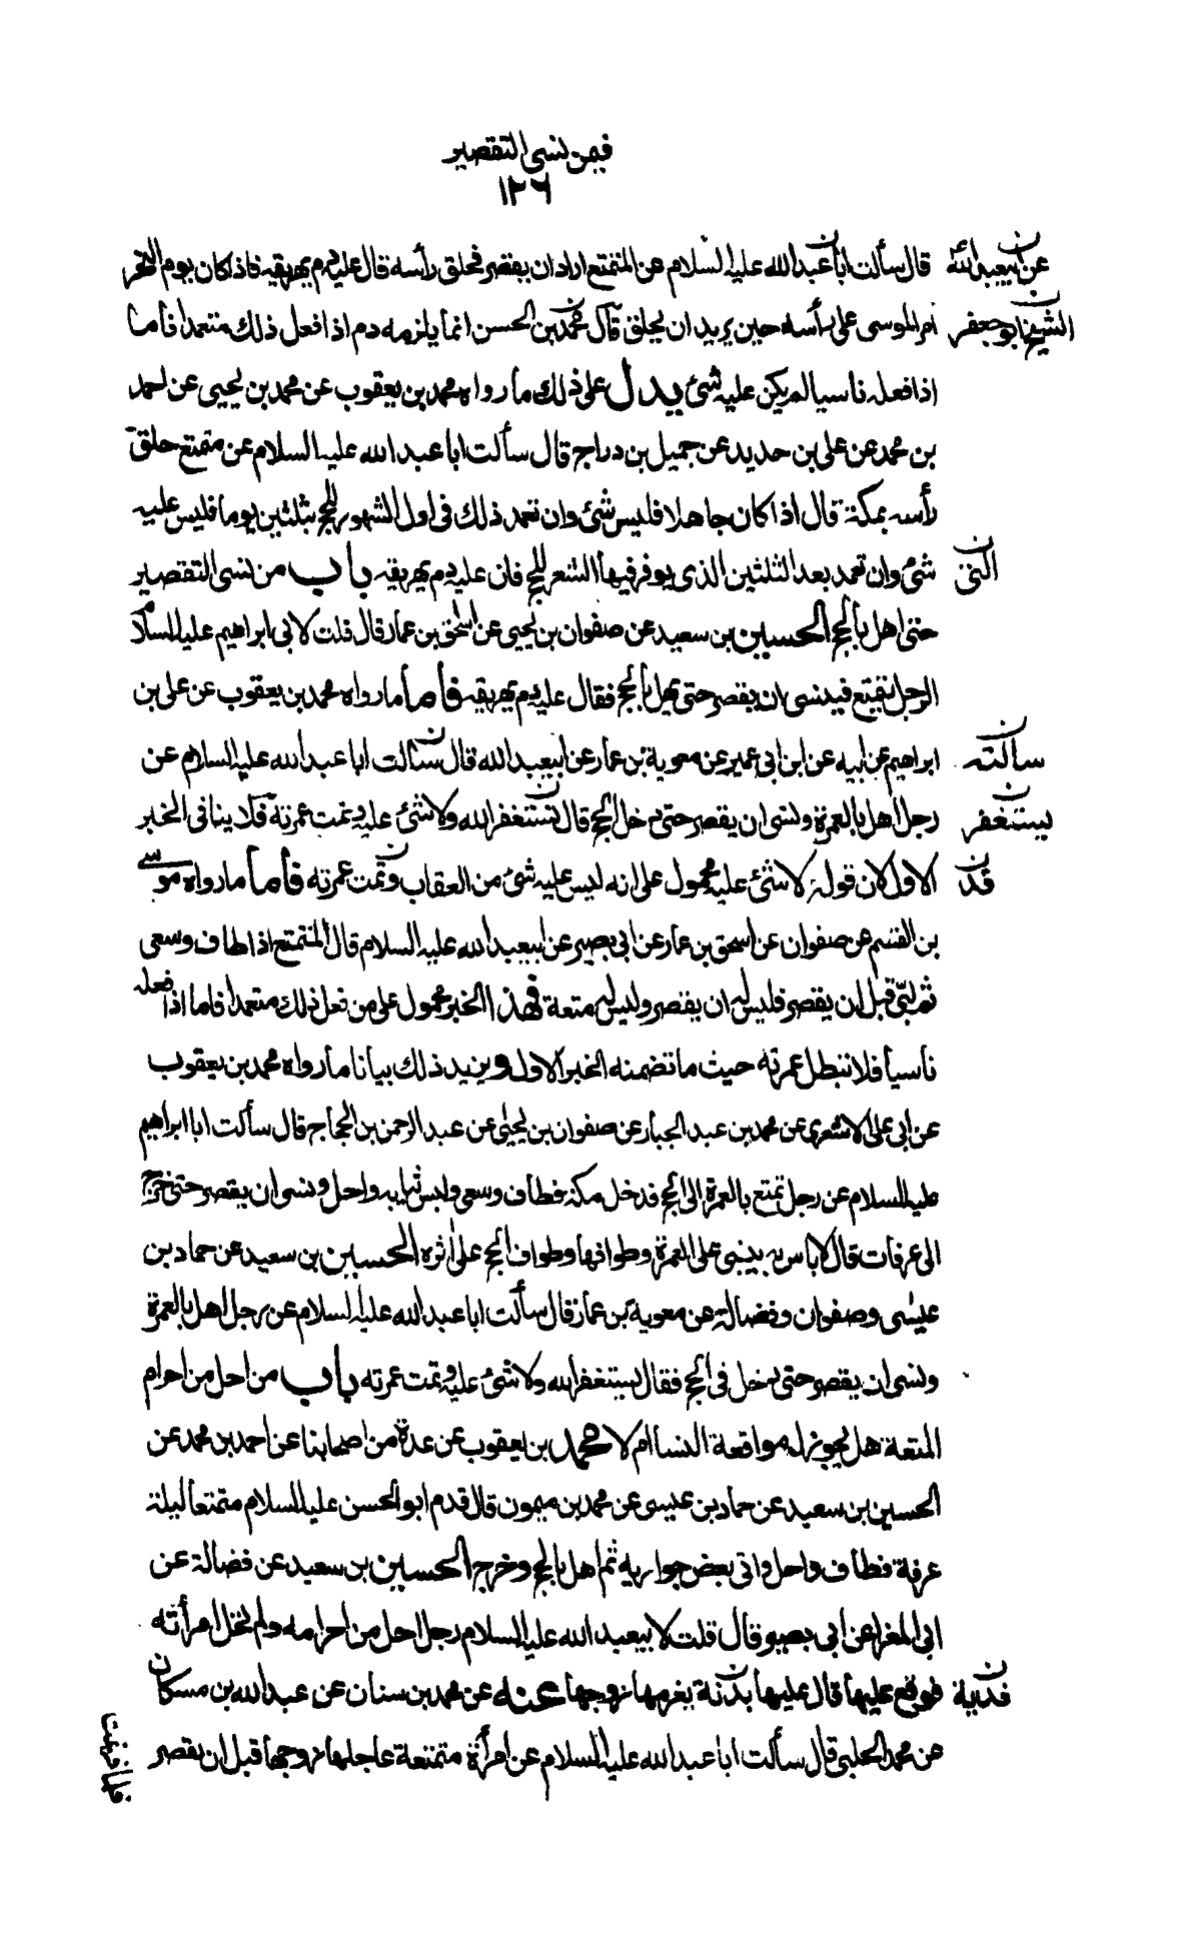 فيمن نسى التقصير
١٢٦
قال سألت ابا عبد الله عليه السلام عن المتمتع اراد ان يقصر فحلق رأسه قال عليه دم يهريقه فاذا كان يوم النحر
عن ابيعبد الله
امر الموسى على رأسه حين يريد ان يحلق قال محمد بن الحسن انما يلزمه دم اذا فعل ذلك متعمدا فاما
الشيخ ابو جعفر
اذا فعله ناسيا لم يكن عليه شئ يدل على ذلك ما رواه محمد بن يعقوب عن محمد بن يحيى عن احمد
بن محمد عن على بن حديد عن جميل بن دراج قال سألت ابا عبد الله عليه السلام عن متمتع حلق
رأسه بمكة قال اذا كان جاهلا فليس شئ وان تعمد ذلك فى اول الشهور للحج بثلثين يوما فليس عليه
شئ وان تعمد بعد الثلثين الذى يوفر فيها الشعر للحج فان عليه دم يهريقه باب من نسى التقصير
التى
حتى اهل بالحج الحسين بن سعيد عن صفوان بن يحيى عن اسحق بن عمار قال قلت لابى ابراهيم عليه السلام
الرجل يتمتع فينسى ان يقصر حتى يهل بالحج فقال عليه دم يهريقه فاما ما رواه محمد بن يعقوب عن على بن
ابراهيم عن ابيه عن ابن ابى عمير عن معوية بن عمار عن ابيعبد الله قال سألت ابا عبد الله عليه السلام عن
سالته
رجل اهل بالعمرة ونسى ان يقصر حتى دخل الحج قال تستغفر الله ولا شئ عليه وتمت عمرته فلا ينافى الخبر
يستغفر
الاول لان قوله لا شئ عليه محمول على انه ليس عليه شئ من العقاب وتمت عمرته فاما ما رواه موسى
قد
بن القسم عن صفوان عن اسحق بن عمار عن ابى بصير عن ابيعبد الله عليه السلام قال المتمتع اذا طاف وسعى
ثم لبّى قبل ان يقصر فليس له ان يقصر وليس له متعة فهذا الخبر محمول على من فعل ذلك متعمدا فاما اذا فعله
ناسيا فلا تبطل عمرته حيث ما تضمنه الخبر الاول ويزيد ذلك بيانا ما رواه محمد بن يعقوب
عن ابى على الاشعرى عن محمد بن عبد الجبار عن صفوان بن يحيى عن عبد الرحمن بن الحجاج قال سألت ابا ابراهيم
عليه السلام عن رجل تمتع بالعمرة الى الحج فدخل مكة فطاف وسعى ولبس ثيابه واحل ونسى ان يقصر حتى خرج
الى عرفات قال لا باس به يبنى على العمرة وطوافها وطواف الحج على اثره الحسين بن سعيد عن حماد بن
عيسى وصفوان وفضالة عن معوية بن عمار قال سألت ابا عبد الله عليه السلام عن رجل اهل بالعمرة
ونسى ان يقصر حتى يدخل فى الحج فقال يستغفر الله ولا شئ عليه وتمت عمرته باب من احل من احرام
المتعة هل يجوز له مواقعة النسا ام لا محمد بن يعقوب عن عدة من اصحابنا عن احمد بن محمد عن
الحسين بن سعيد عن حماد بن عيسى عن محمد بن ميمون قال قدم ابو الحسن عليه السلام متمتعا ليلة
عرفة فطاف واحل واتى بعض جواريه ثم اهل بالحج وخرج الحسين بن سعيد عن فضالة عن
ابى المغرا عن ابى بصير قال قلت لابيعبد الله عليه السلام رجل احل من احرامه ولم تحل امرأته
فوقع عليها قال عليها بدنة يغرمها زوجها عنه عن محمد بن سنان عن عبد الله بن مسكان
فدية
عن محمد الحلبى قال سألت ابا عبد الله عليه السلام عن امرأة متمتعة عاجلها زوجها قبل ان يقصر